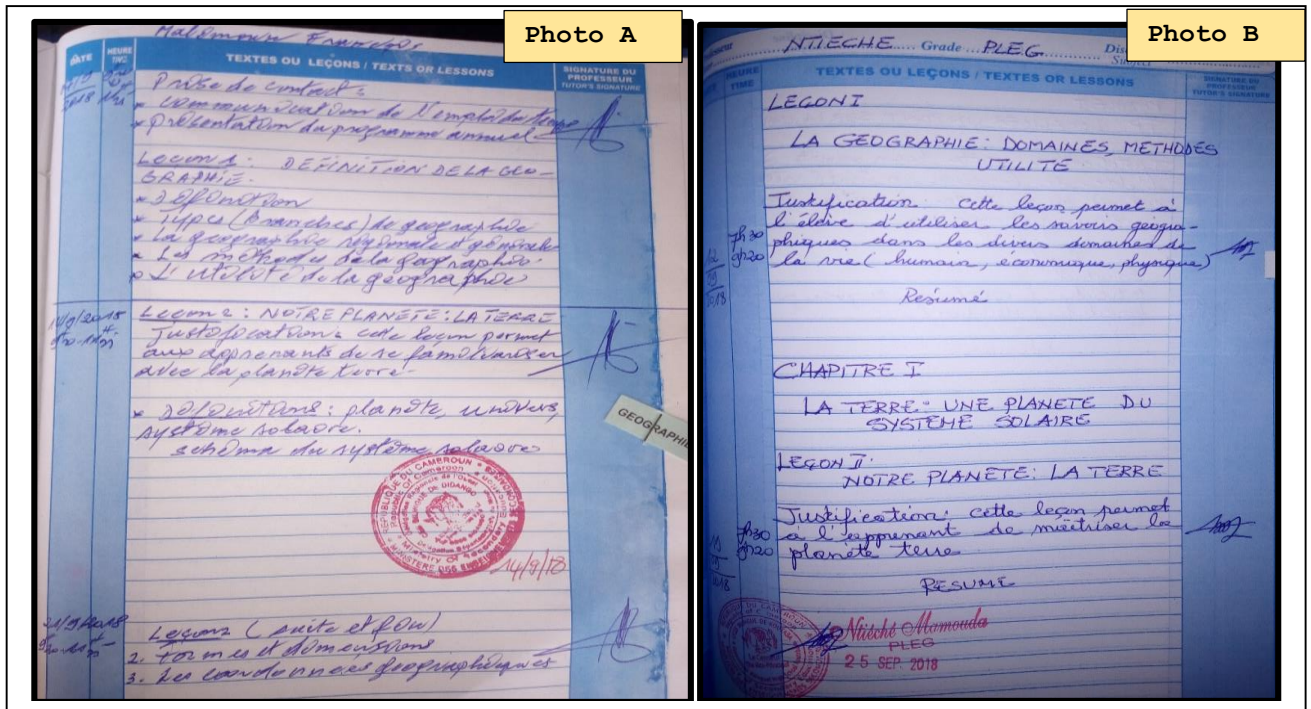 Photo A
DATE
HEURE
TIME
TEXTES OU LEÇONS / TEXTS OR LESSONS
SIGNATURE DU
PROFESSEUR
TUTOR'S SIGNATURE
2018
Prise de contact :
* communication de l'emploi du temps
* présentation du programme annuel
Leçon 1 : DEFINITION DE LA GEO-
GRAPHIE.
* Définition
* Types (branches) de géographie
* La géographie régionale et générale
* Les méthodes de la géographie
* L'utilité de la géographie
Leçon 2 : NOTRE PLANETE : LA TERRE
Justification : cette leçon permet
aux apprenants de se familiariser
avec la planète terre.
* Définitions : planète, univers,
système solaire.
schéma du système solaire
GEOGRAPHIE
REPUBLIQUE DU CAMEROUN
14/9/18
(suite et fin)
2. formes et dimensions
3. Les coordonnées géographiques
Photo B
NTIECHE Grade PLEG
HEURE
TIME
TEXTES OU LEÇONS / TEXTS OR LESSONS
SIGNATURE DU
PROFESSEUR
TUTOR'S SIGNATURE
LEÇON I
LA GEOGRAPHIE : DOMAINES, METHODES
UTILITE
Justification cette leçon permet à
l'élève d'utiliser les savoirs géogra-
phiques dans les divers domaines de
la vie (humain, économique, physique)
7h30
9h20
2018
Résumé
CHAPITRE I
LA TERRE : UNE PLANETE DU
SYSTEME SOLAIRE
LEÇON II.
NOTRE PLANETE : LA TERRE
Justification : cette leçon permet
à l'apprenant de maîtriser la
planète terre
7h30
9h20
19
2018
RESUME
Ntiéché Mamouda
PLEG
25 SEP. 2018